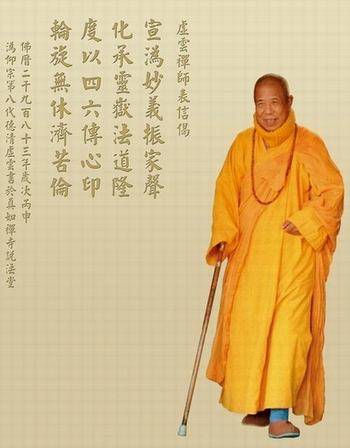 虛雲禪師表信偈
宣溈妙義振家聲
化承靈嶽法道隆
度以四六傳心印
輪旋無休濟苦倫
佛曆二千九百八十三年歲次丙申
溈仰宗第八代德清虛雲書於真如禪寺說法堂